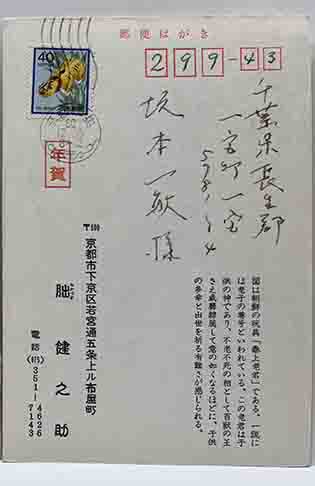 郵便はがき
40
299-43
年賀
千葉県長生郡
一宮町一宮
坂本一敏様
図は朝鮮の玩具「泰上老君」である。一説に
は老子の尊号といわれている。この老君は子
供の神であり、不老不死の相として百獣の王
さえ威圧龍属して意の如くなるほどに、子供
の多幸と出世を祈る有難さが感じられる。
〒600
京都市下京区若宮通五条上ル布屋町
朏健之助
電話(075)351-4626
7143